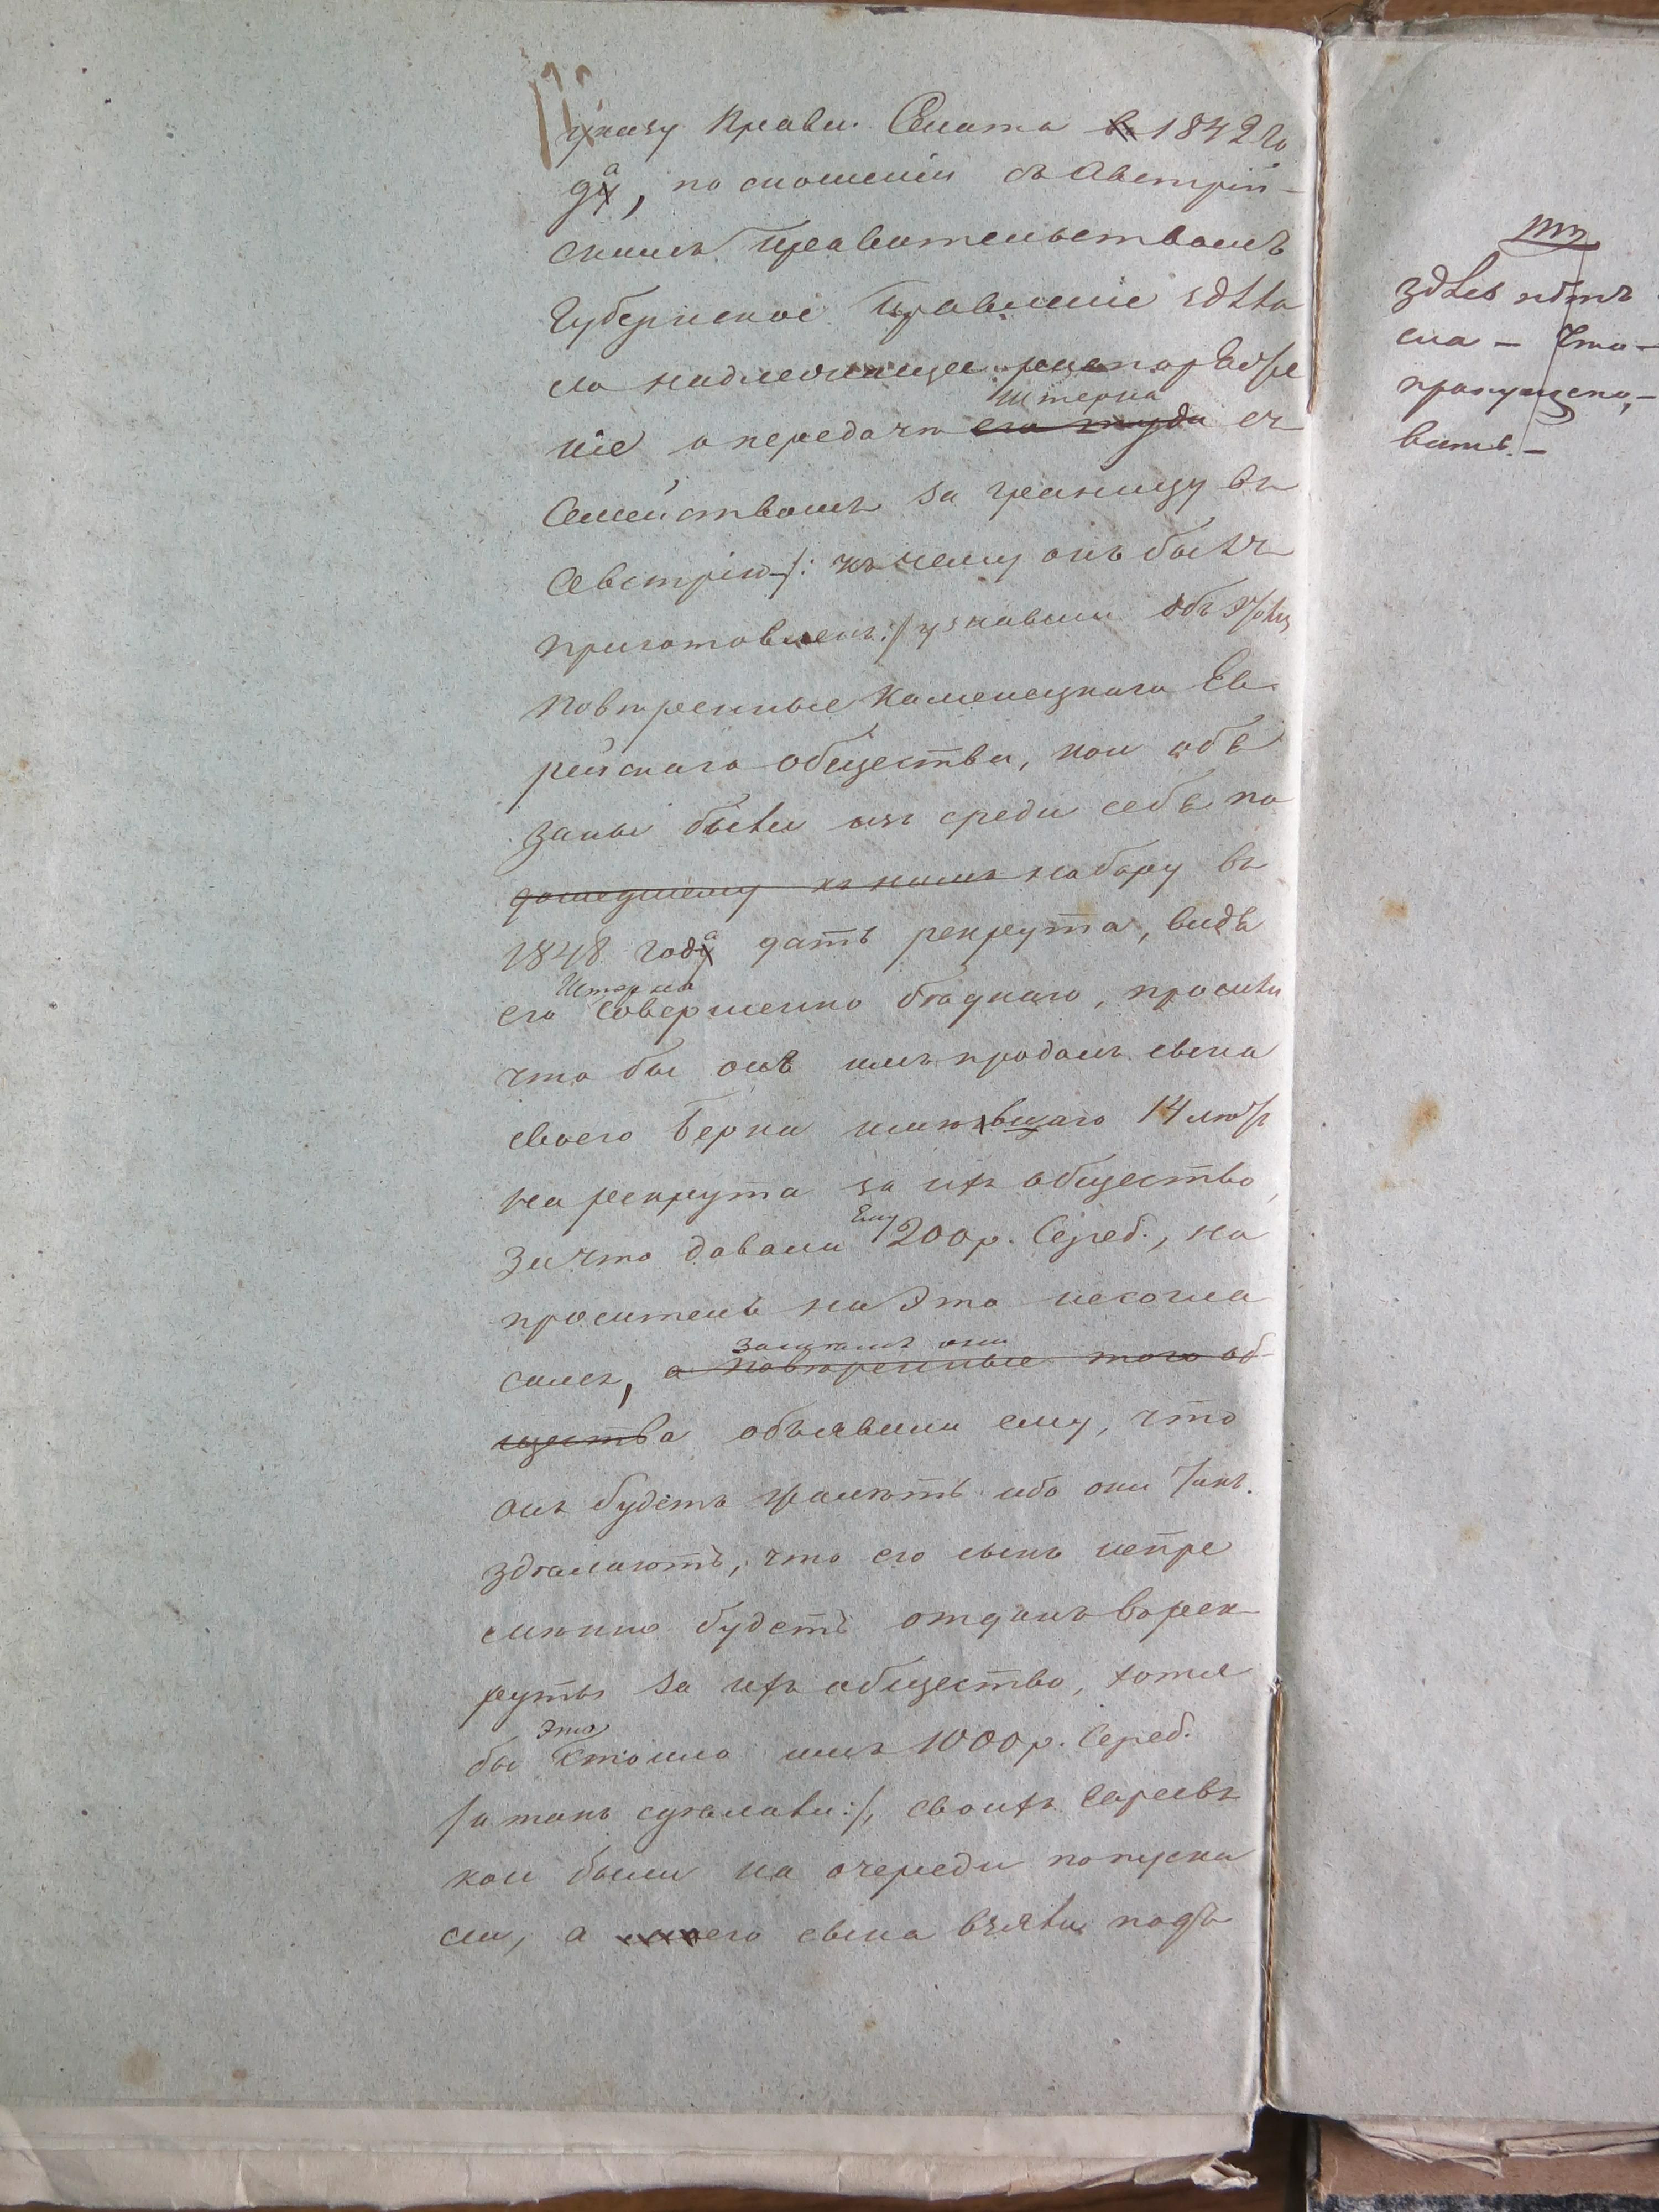 указу Правит. Сената 1842 го
да, по сношеніи съ Австрій-
скимъ правительствомъ
Губернское Правленіе здѣла
ло надлежащее распоряже
ніе о передачѣ его туда Штерна съ
Семействомъ за границу въ
Австрію /: къ чему онъ былъ
приготовленъ :/ узнавши объ этомъ
повѣренные Каменецкаго Ев
рейскаго общества, кои обя
заны были изъ среди себя по
дошедшему къ нимъ набору въ
1848 года дать рекрута, видя
его Штерна совершенно бѣднаго, просили
что бы онъ имъ продалъ сына
своего Берка имѣвщаго 14 лѣтъ
на рекрута за ихъ общество,
За что давали Ему 200 р. Сереб., но
проситель на это несогла
сился, а повѣренные того об- Затѣмъ они
щества объявили ему, что
онъ будетъ жалѣть ибо они такъ
здѣлаютъ, что его сынъ непре
мѣнно будетъ отданъ въ рек
руты за ихъ общество, хотя
бы это стоило имъ 1000 р. Сереб.
/: и такъ сдѣлали :/, своихъ Евреевъ
кои были на очереди попуска
ли, а его сына взяли подъ
здѣсь нѣтъ
сла - Что-
пропущено,-
вить. -